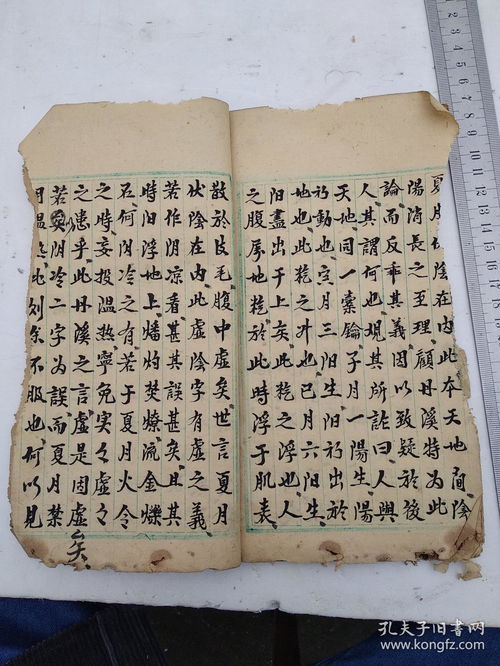 夏月伏陰在内此本天地間陰
陽消長之至理顧丹溪特為此
論而反乖其義因以致疑於後
人其謂何也覌其所詐曰人與
天地同一橐鑰子月一陽生陽
初動也寅月三阳生阳初出於
地也此乾之升也巳月六阳生
阳盡出于上矣此乾之浮也人
之腹属地乾於此時浮于肌表
散於皮毛腹中虚矣世言夏月
伏陰在内此虚陰字有虚之義
若作阴凉看甚其誤甚矣且其
時阳浮地上燔灼焚燎流金爍
石何阴冷之有若于夏月火令
之時妄投温熱寧免实々虚々
之患乎此丹溪之言虚是固虚
矣
若矣阴冷二字为誤而夏月禁
用温热此则余不服也何以見
孔夫子旧書网
www.kongfz.com